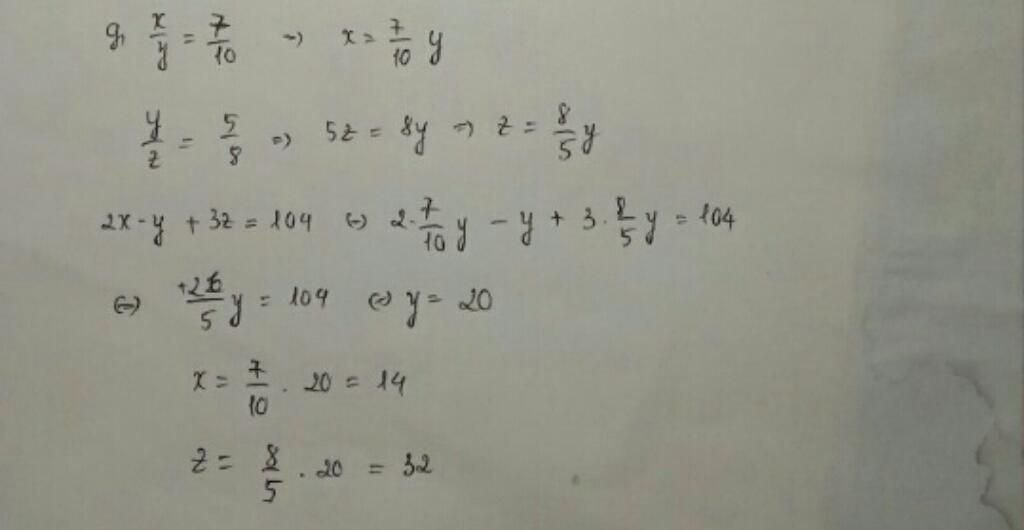 g, x/y = 7/10 => x = 7/10 y
y/z = 5/8 => 5z = 8y => z = 8/5 y
2x - y + 3z = 104 <=> 2. 7/10 y - y + 3. 8/5 y = 104
<=> +26/5 y = 104 <=> y = 20
x = 7/10 . 20 = 14
z = 8/5 . 20 = 32